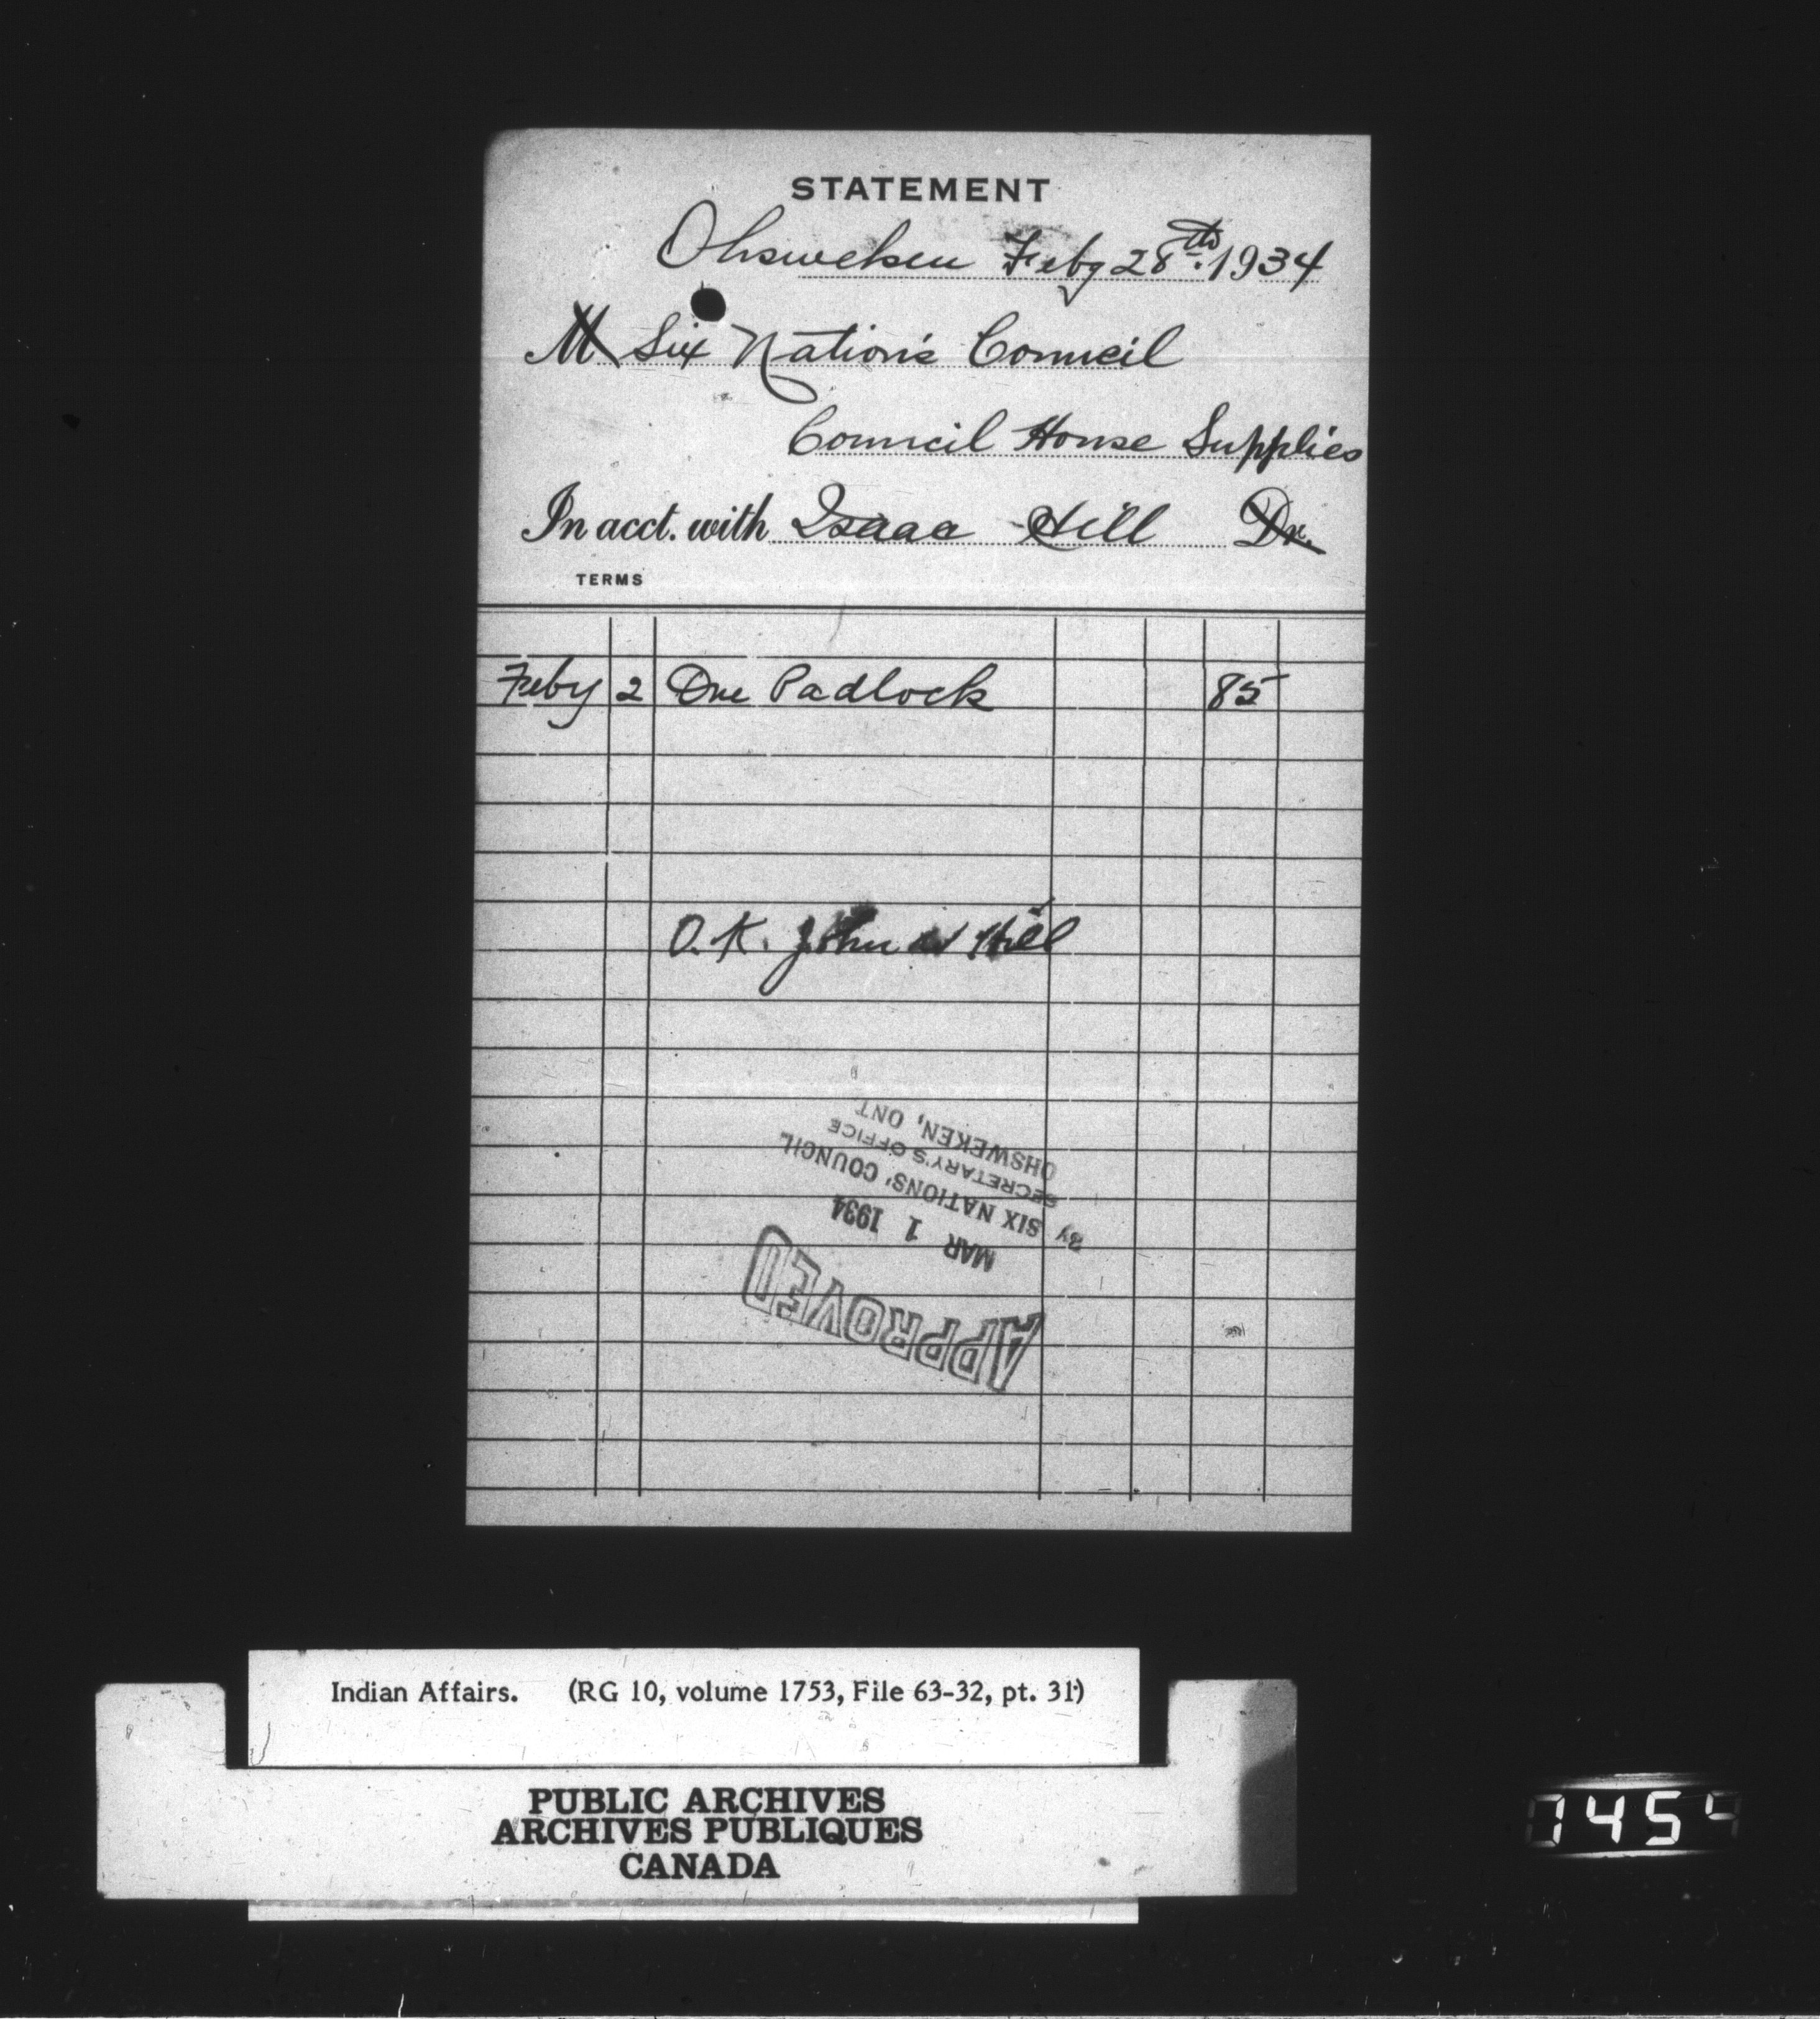 STATEMENT
Ohsweken Feby 28th 1934
M Six Nation's Council
Council House Supplies
In acct. with Isaac Hill Dr.
TERMS
Feby 2 One Padlock 85
O.K. John W Hill
APPROVED
MAR 1 1934
BY SIX NATIONS' COUNCIL
SECRETARY'S OFFICE
OHSWEKEN, ONT.
Indian Affairs. (RG 10, volume 1753, File 63-32, pt. 31)
PUBLIC ARCHIVES
ARCHIVES PUBLIQUES
CANADA